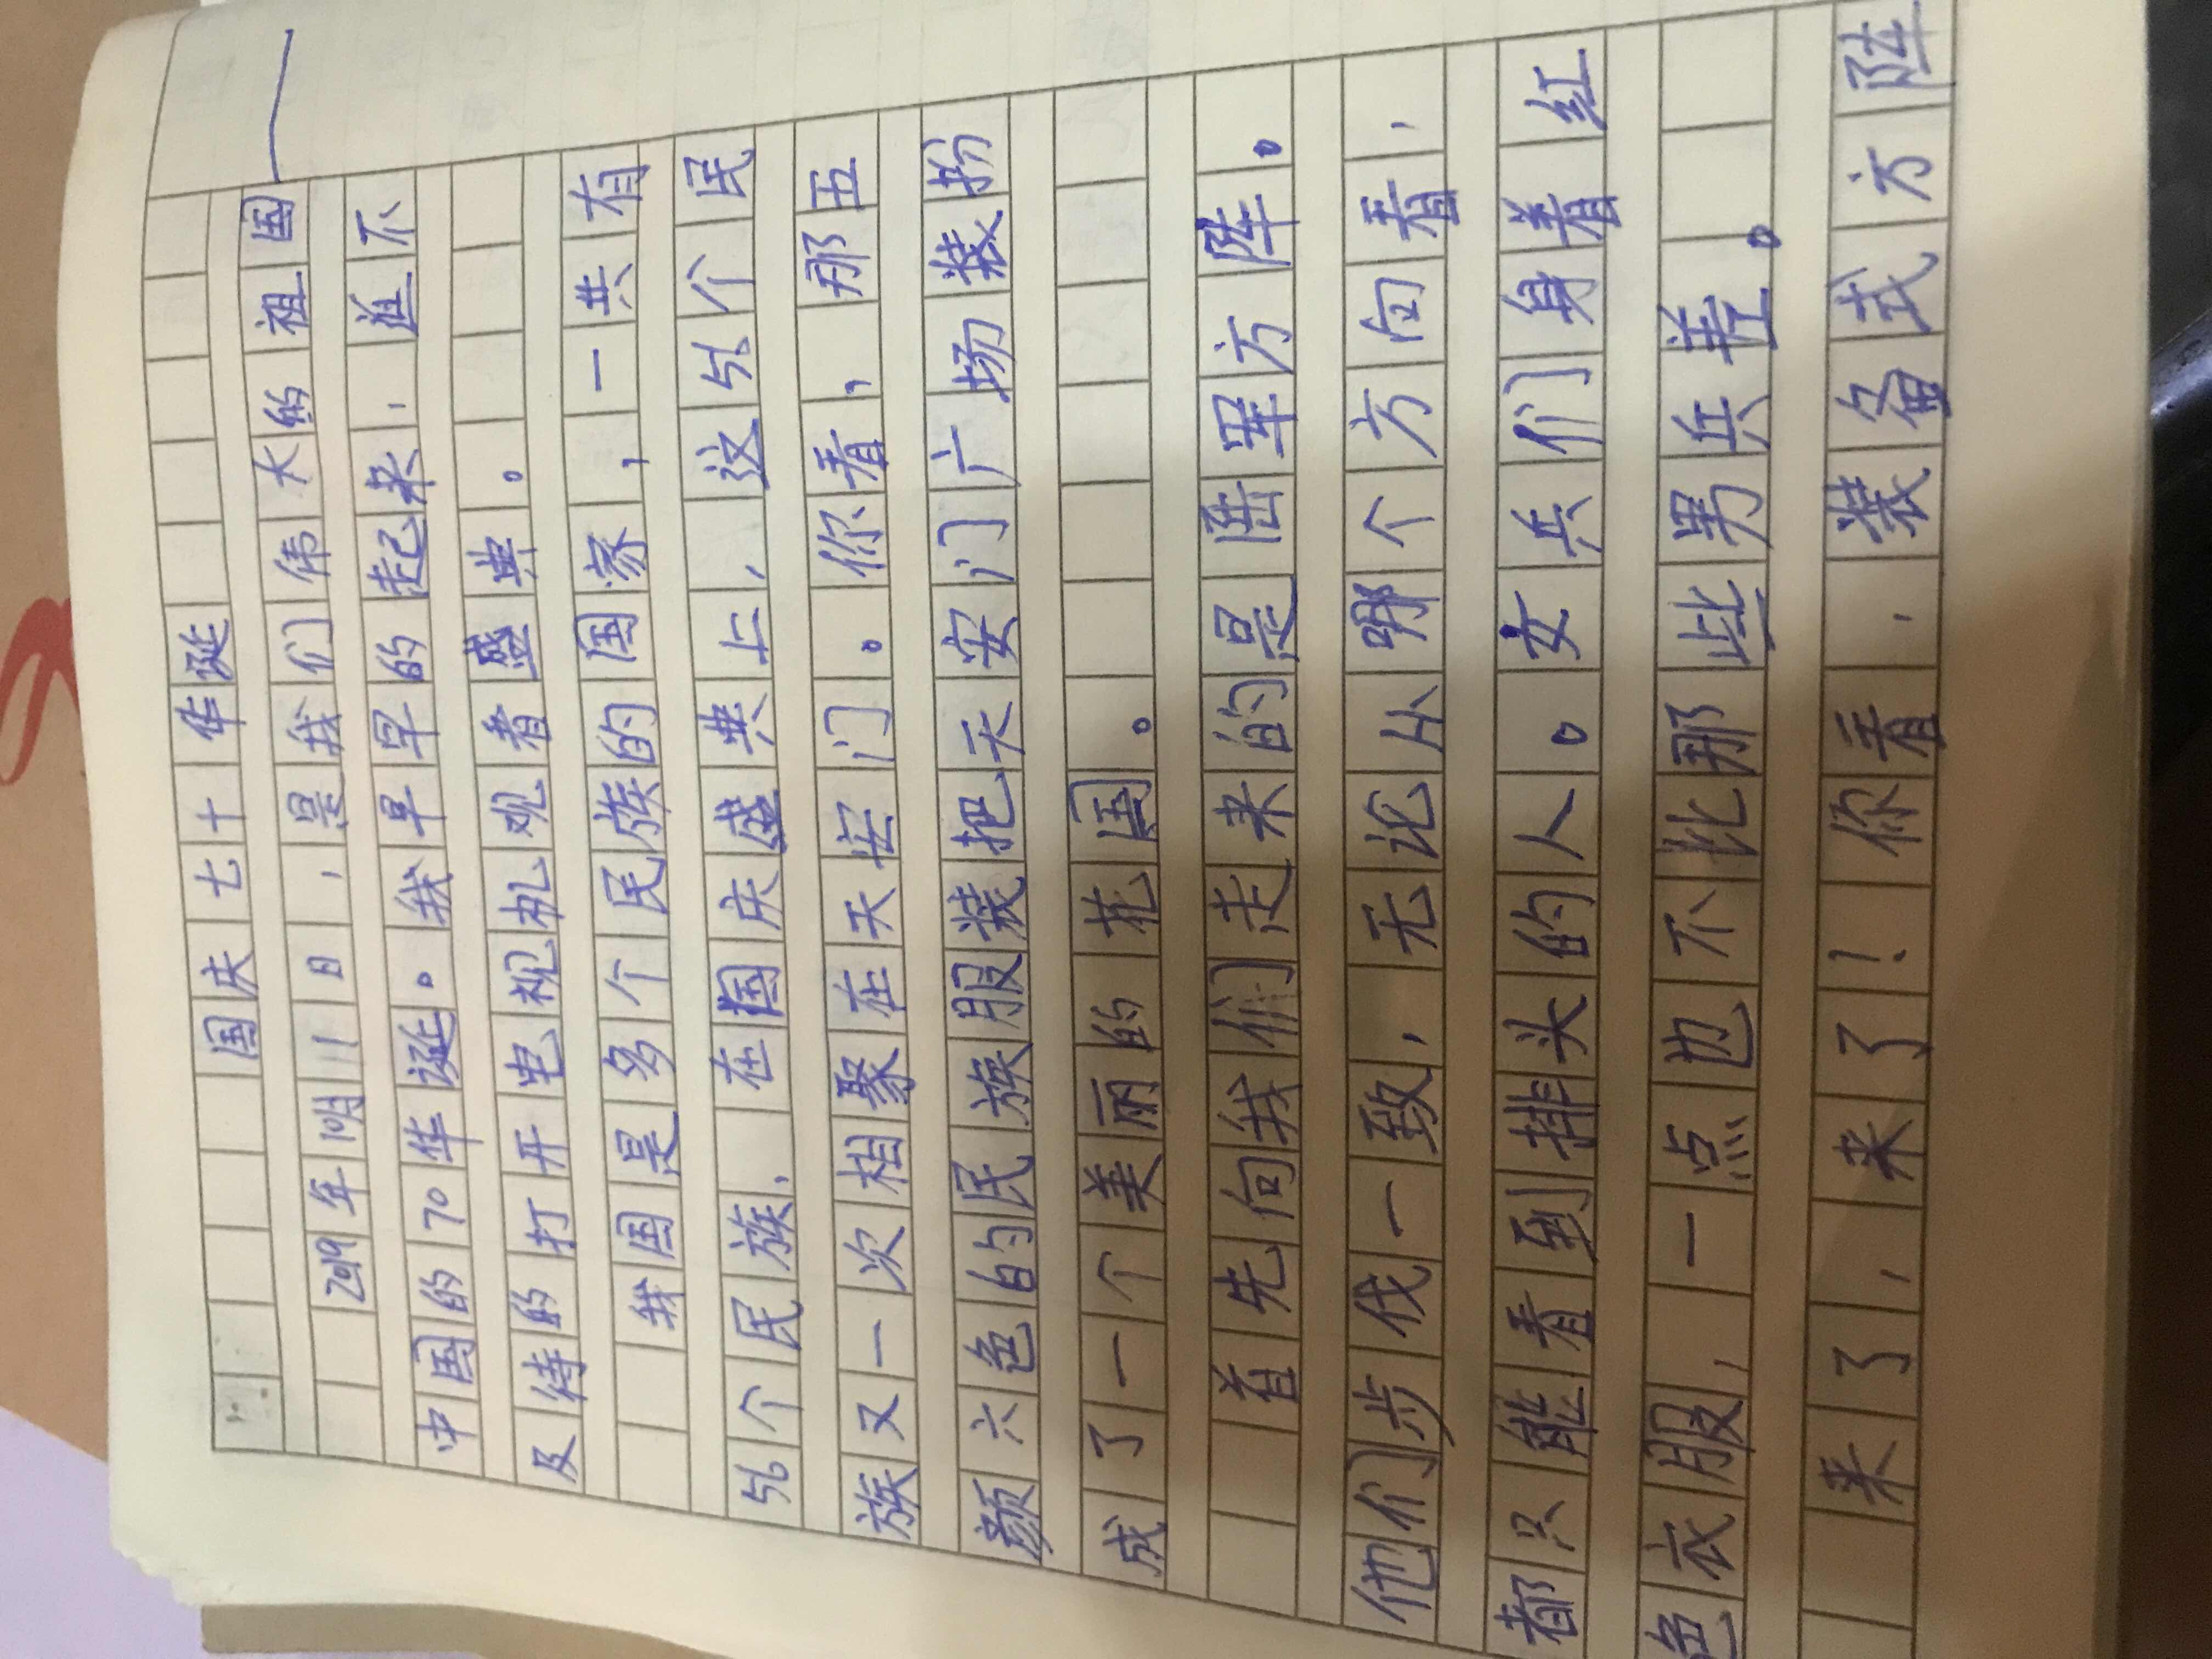 国庆七十华诞
2019年10月1日，是我们伟大的祖国
中国的70华诞。我早早的起来，迫不
及待的打开电视机观看盛典。
我国是多个民族的国家，一共有
56个民族，在国庆盛典上，这56个民
族又一次相聚在天安门。你看，那五
颜六色的民族服装把天安门广场装扮
成了一个美丽的花园。
首先向我们走来的是陆军方阵。
他们步伐一致，无论从哪个方向看，
都只能看到排头的人。女兵们身着红
色衣服，一点也不比那些男兵差。
来了，来了！你看，装备式方阵